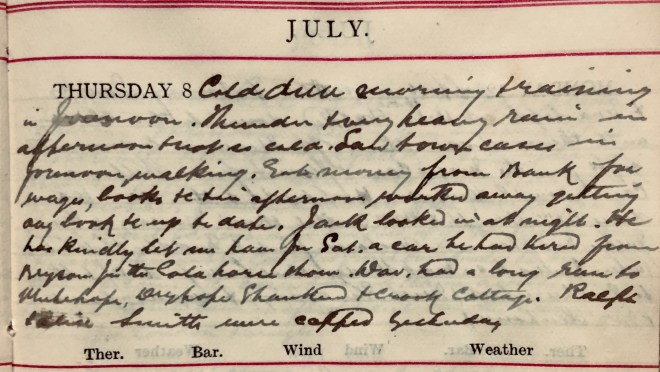 JULY.
THURSDAY 8 Cold dull morning & raining
in forenoon. Thunder & very heavy rain in
afternoon & not as cold. Saw town cases in
forenoon, walking. Got money from Bank for
wages, books &c & in afternoon worked away getting
day book &c up to date. Jack looked in at night. He
has kindly let me have for Sat. a car he had hired from
Bryson for the horse show. Dav. had a long run to
Dryhope & Crook Cottage. Ralph
& Smith were capped yesterday
Ther. Bar. Wind Weather